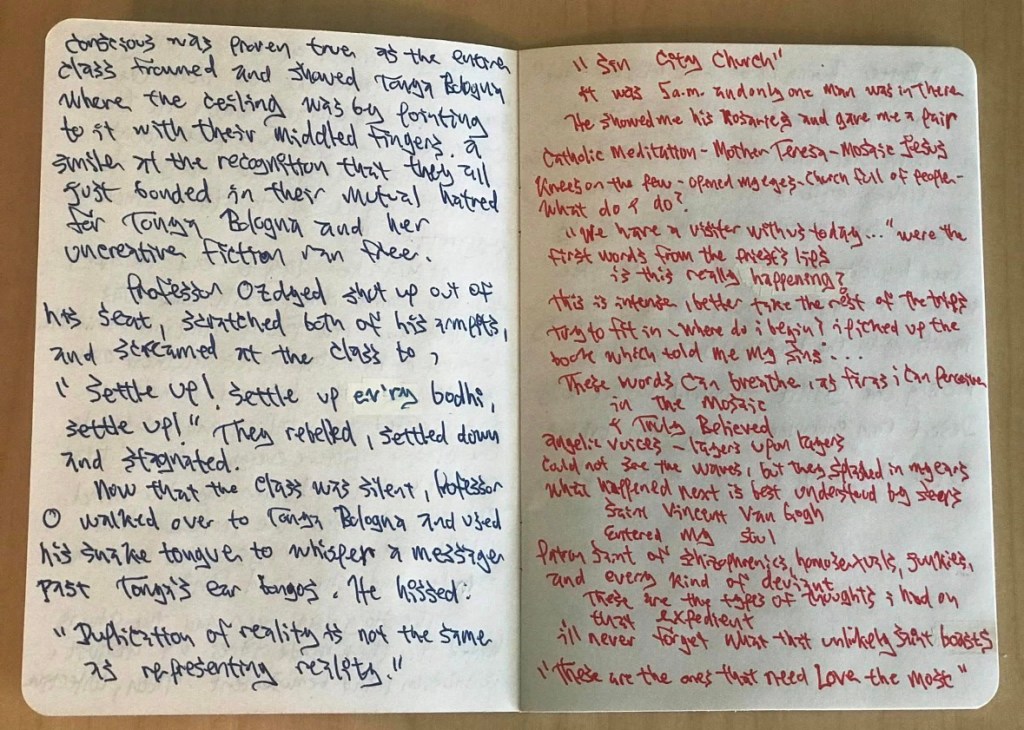 conscious was proven true as the entire
class frowned and showed Tonya Bologna
where the ceiling was by pointing
to it with their middled fingers. a
smile at the recognition that they all
just bonded in their mutual hatred
for Tonya Bologna and her
uncreative fiction ran free.
Professor Ozdyed shot up out of
his seat, scratched both of his armpits,
and screamed at the class to,
"settle up! settle up ev'ry bodhi,
settle up!" They rebelled, settled down
and stagnated.
Now that the class was silent, Professor
O walked over to Tonya Bologna and used
his snake tongue to whisper a message
past Tonya's ear bongos. He hissed.
"Duplication of reality is not the same
as representing reality."
"Sin City Church"
it was 5 a.m. and only one man was in there
He showed me his Rosaries and gave me a pair
Catholic Meditation - Mother Teresa - Mosaic Jesus
Knees on the pew - opened my eyes - Church full of people -
What do i do?
"We have a visiter with us today..." were the
first words from the priest's lips
is this really happening?
this is intense, i better take the rest of the trips
try to fit in. Where do i begin? i picked up the
book which told me my sins'...
These words can breathe, as far as i can perceive
in the Mosaic
i Truly Believed
angelic voices - layers upon layers
could not see the waves, but they splashed in my ears
what happened next is best understood by seers
Saint Vincent Van Gogh
Entered my soul
Patron Saint of schizophrenics, homosexuals, junkies,
and every kind of deviant
These are the types of thoughts i had on
that expedient
i'll never forget what that unlikely saint boasts
"These are the ones that need Love the most"